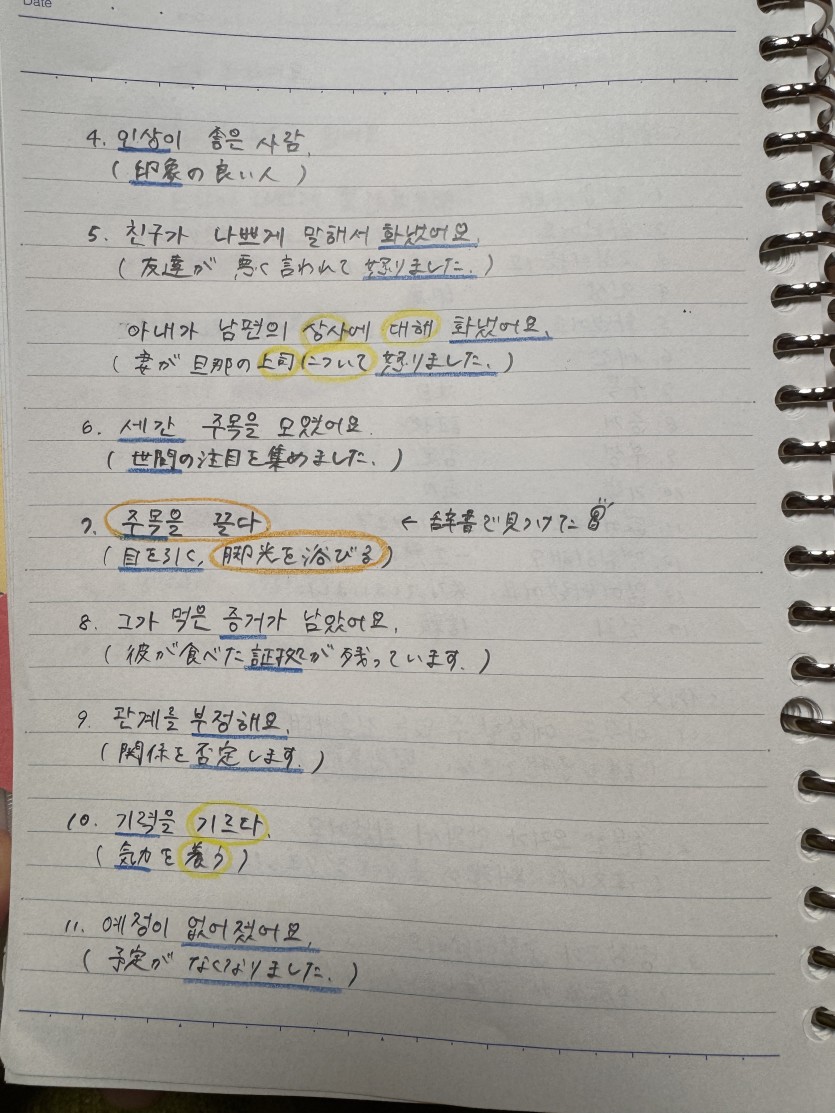 Date
4. 인상이 좋은 사람.
( 印象の良い人 )
5. 친구가 나쁘게 말해서 화났어요.
( 友達が 悪く言われて 怒りました. )
아내가 남편의 상사에 대해 화났어요.
( 妻が 旦那の上司について 怒りました. )
6. 세간 주목을 모았어요.
( 世間の注目を集めました. )
7. 주목을 끌다 ← 辞書で見つけた
( 目を引く, 脚光を浴びる )
8. 그가 먹은 증거가 남았어요.
( 彼が食べた証拠が 残っています. )
9. 관계를 부정해요.
( 関係を否定します. )
10. 기력을 기르다.
( 気力を養う )
11. 예정이 없어졌어요.
( 予定が なくなりました. )